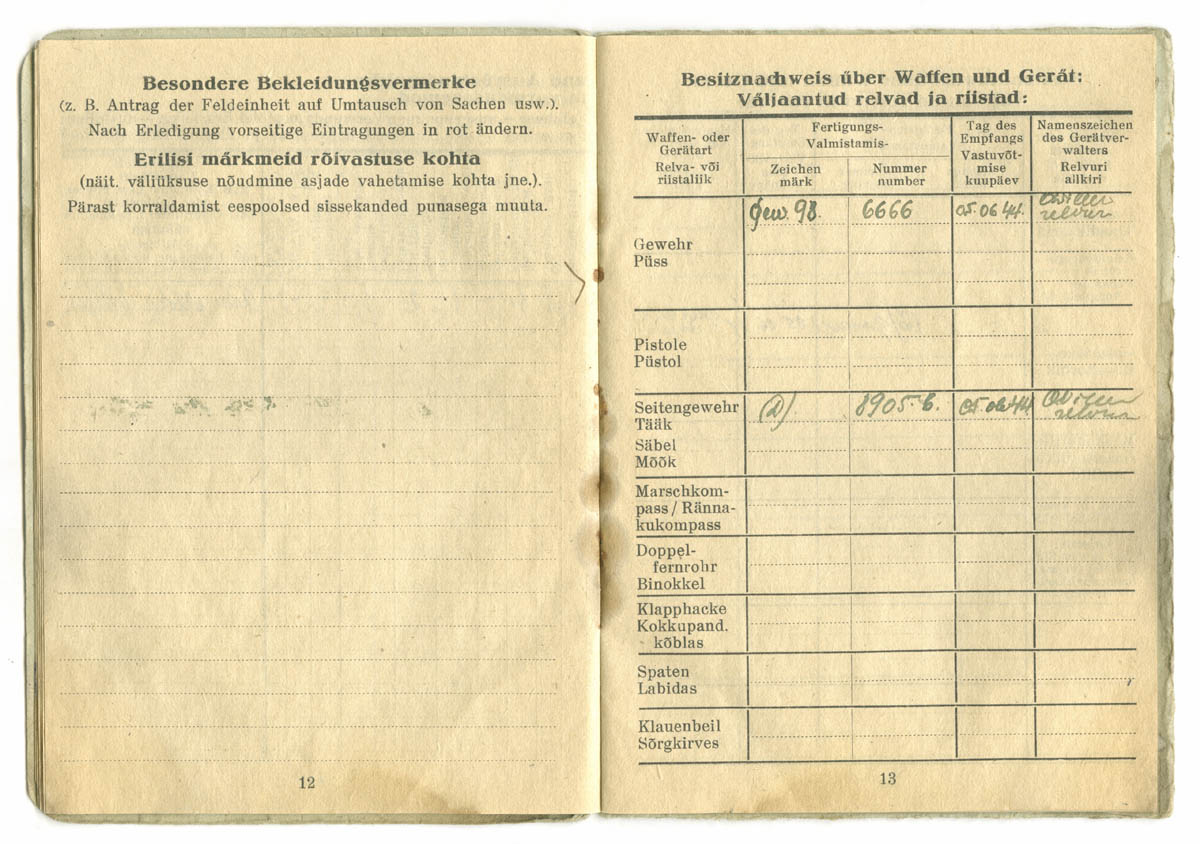 Besondere Bekleidungsvermerke
(z. B. Antrag der Feldeinheit auf Umtausch von Sachen usw.).
Nach Erledigung vorseitige Eintragungen in rot ändern.
Erilisi märkmeid rõivastuse kohta
(näit. väliüksuse nõudmine asjade vahetamise kohta jne.).
Pärast korraldamist eespoolsed sissekanded punasega muuta.
12
Besitznachweis über Waffen und Gerät:
Väljaantud relvad ja riistad:
Waffen- oder
Gerätart
Relva- või
riistaliik
Fertigungs-
Valmistamis-
Zeichen
märk
Nummer
number
Tag des
Empfangs
Vastuvõt-
mise
kuupäev
Namenszeichen
des Gerätver-
walters
Relvuri
allkiri
Gewehr
Püss
Gew. 98. 6666 05.06 44. relvur
Pistole
Püstol
Seitengewehr
Tääk
Säbel
Möök
8905 05.06 44 relvur
Marschkom-
pass / Ränna-
kukompass
Doppel-
fernrohr
Binokkel
Klapphacke
Kokkupand.
kõblas
Spaten
Labidas
Klauenbeil
Sõrgkirves
13